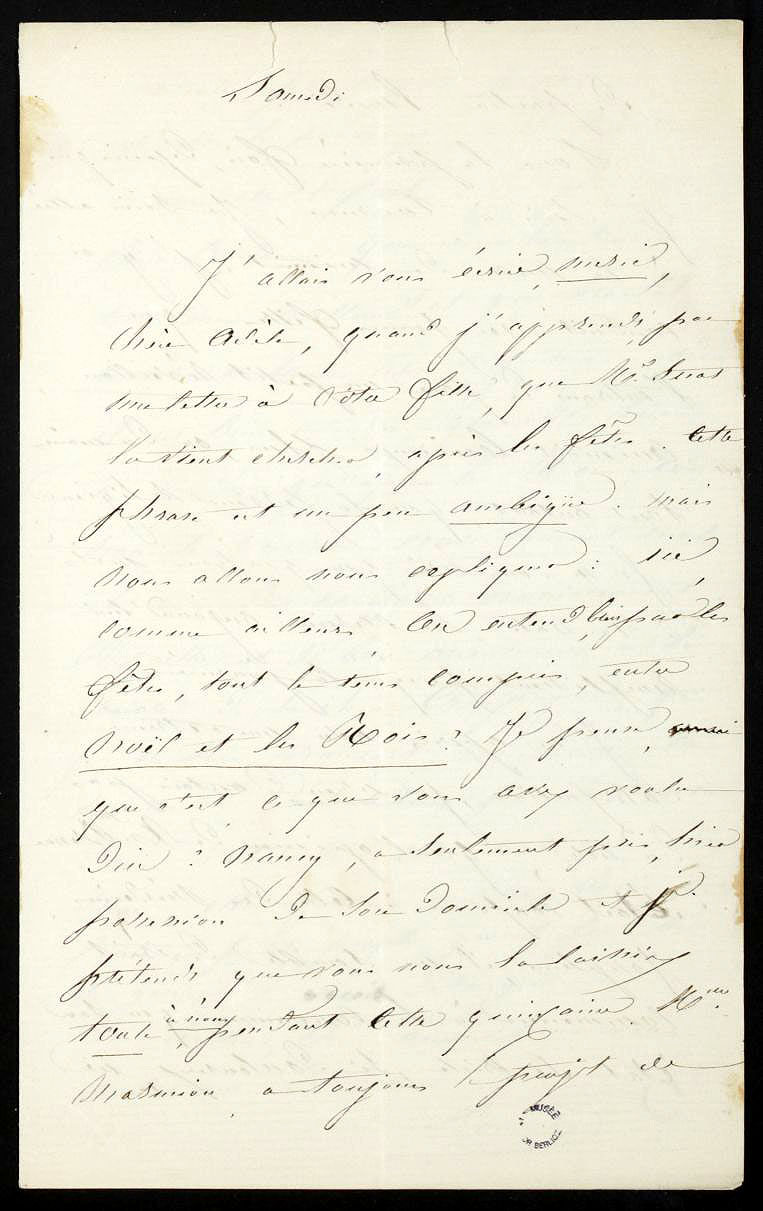 Samedi
J'allais vous écrire, merci,
chère Adèle, quand j'apprends, par
une lettre à votre fille, que Mr Suat
la vient chercher, après les fêtes. Cette
phrase est un peu ambigüe. mais
nous allons nous expliquer : ici,
comme ailleurs, on entend bien par les
fêtes, tout le tems compris, entre
Noël et les Rois ? Je pense,
que c'est, ce que vous avez voulu
dire ? Nancy, a seulement pris, hier
possession de son domicile et je
prétends que vous nous la laissiez
toute à nous, pendant cette quinzaine. Mme
Marmion, a toujours le projet de
MUSÉE
OR BERLIOZ